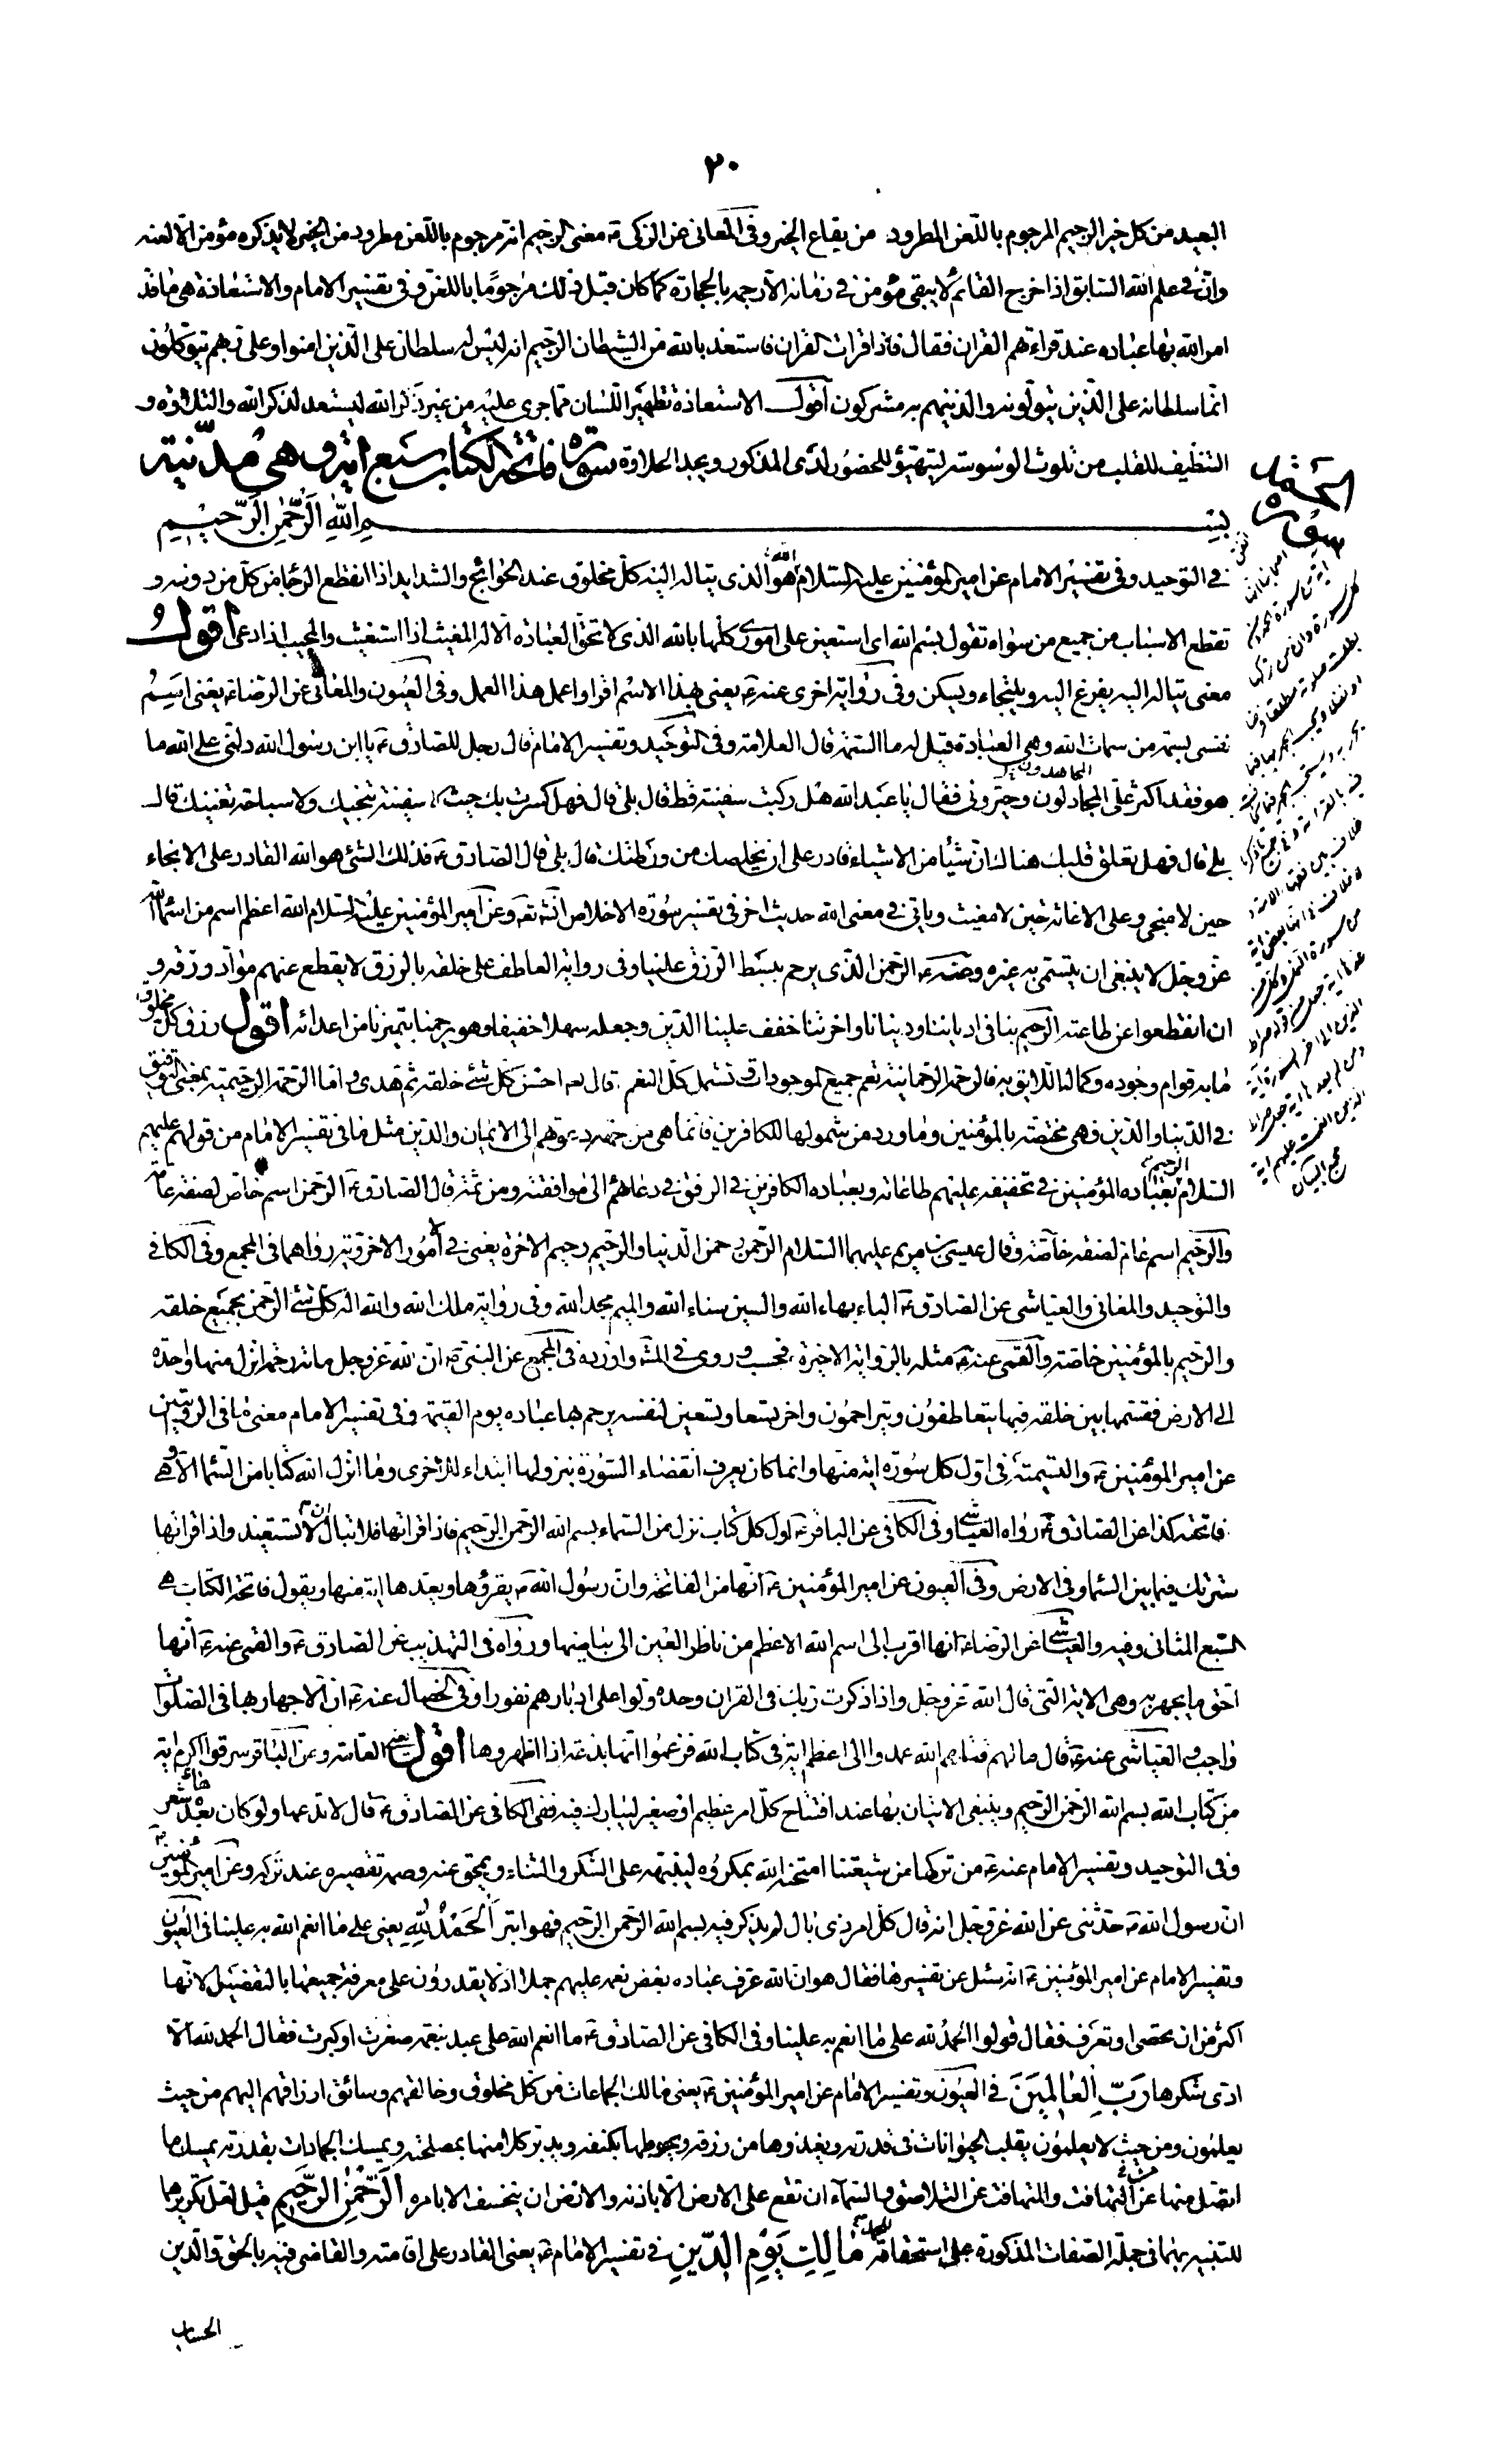 ٢٠
البعيد من كل خير الرجيم المرجوم باللعن المطرود من بقاع الخير وفى المعانى عن الزكى ع معنى الرجيم انه مرجوم باللعن مطرود من الخير لا يذكره مؤمن الا لعنه
وان فى علم الله السابق اذا خرج القائم لا يبقى مؤمن فى زمانه الا رجمه بالحجارة كما كان قبل ذلك مرجوما باللعن وفى تفسير الامام والاستعاذة هى ما قد
امر الله بها عباده عند قراءتهم القران فقال فاذا قرات القران فاستعذ بالله من الشيطان الرجيم انه ليس له سلطان على الذين امنوا وعلى ربهم يتوكلون
انما سلطانه على الذين يتولونه والذينهم به مشركون اقول الاستعاذة تطهير اللسان مما جرى عليه من غير ذكر الله ليستعد لذكر الله والتلاوة و
التنظيف للقلب من تلوث الوسوسة ليتهيؤ للحضور لدى المذكور ويجد الحلاوة سورة فاتحة الكتاب سبع ايه وهى مدنية
بسم الله الرحمن الرحيم
فى التوحيد وفى تفسير الامام عن امير المؤمنين عليه السلام الله هو الذى يتاله اليه كل مخلوق عند الحوائج والشدايد اذا انقطع الرجا من كل من دونه و
تقطع الاسباب من جميع من سواه تقول بسم الله اى استعين على امورى كلها بالله الذى لا تحق العبادة الا له المغيث اذا استغيث والمجيب اذا دعى اقول
معنى يتاله اليه يفزع اليه ويلتجاء ويسكن وفى رواية اخرى عنه ع يعنى بهذا الاسم اقرا واعمل هذا العمل وفى العيون والمعانى عن الرضا ع يعنى اسم
نفسى بسمة من سمات الله وهى العبادة قيل له ما السمة قال العلامة وفى التوحيد وتفسير الامام قال رجل للصادق ع يا ابن رسول الله دلنى على الله ما
هو فقد اكثر على المجادلون وحيرونى فقال يا عبد الله هل ركبت سفينة قط قال بلى قال فهل كسرت بك حيث لا سفينة تنجيك ولا سباحة تغنيك قال
بلى قال فهل تعلق قلبك هناك ان شيئا من الاشياء قادر على ان يخلصك من ورطتك قال بلى قال الصادق ع فذلك الشئ هو الله القادر على الانجاء
حين لا منجى وعلى الاغاثة حين لا مغيث وياتى فى معنى الله حديث اخر فى تفسير سورة الاخلاص انشه تعه وعن امير المؤمنين عليه السلام الله اعظم اسم من اسماء الله
عز وجل لا ينبغى ان يتسمى به غيره وعنه ع الرحمن الذى يرحم ببسط الرزق علينا وفى رواية العاطف على خلقه بالرزق لا يقطع عنهم مواد رزقه و
ان انقطعوا عن طاعته الرحيم بنا فى ادياننا ودنيانا واخرتنا خفف علينا الدين وجعله سهلا خفيفا وهو يرحمنا بتميزنا من اعدائه اقول رزق كل مخلوق
ما به قوام وجوده وكماله اللايق به فالرحمة الرحمانية تعم جميع الموجودات وتشمل كل النعم قال الله احسن كل شئ خلقه ثم هدى واما الرحمة الرحيمية بمعنى التوفيق
فى الدنيا والدين فهى مختصة بالمؤمنين وما ورد من شمولها للكافرين فانما هى من جهة دعوتهم الى الايمان والدين مثل ما فى تفسير الامام من قولهم عليهم
السلام الرحيم بعباده المؤمنين فى تخفيفه عليهم طاعاته وبعباده الكافرين فى الرفق فى دعائهم الى موافقته ومن ثمة قال الصادق ع الرحمن اسم خاص لصفة عامة
والرحيم اسم عام لصفة خاصة وقال عيسى بن مريم عليهما السلام الرحمن رحمن الدنيا والرحيم رحيم الاخرة يعنى فى الامور الاخروية رواهما فى المجمع وفى الكافى
والتوحيد والمعانى والعياشى عن الصادق ع الباء بهاء الله والسين سناء الله والميم مجد الله وفى رواية ملك الله والله اله كل شئ الرحمن بجميع خلقه
والرحيم بالمؤمنين خاصة والقمى عنه ع مثله بالرواية الاخيرة فحسب وروى فى المشه واورده فى المجمع عن النبى ص ان لله عز وجل مائة رحمة انزل منها واحدة
الى الارض فقسمها بين خلقه فبها يتعاطفون ويتراحمون واخر تسعا وتسعين لنفسه يرحم بها عباده يوم القيمة وفى تفسير الامام معنى ما فى الروايتين
عن امير المؤمنين ع والتسمية فى اول كل سورة اية منها وانما كان يعرف انقضاء السورة بنزولها ابتداء للاخرى وما انزل الله كتابا من السماء الا وهى
فاتحته كذا عن الصادق ع رواه العياشى وفى الكافى عن الباقر ع اول كل كتاب نزل من السماء بسم الله الرحمن الرحيم فاذا قراتها فلا تبال ان لا تستعيذ واذا قراتها
سترتك فيما بين السماء وفى الارض وفى العيون عن امير المؤمنين ع انها من الفاتحة وان رسول الله ص يقرؤها ويعدها اية منها ويقول فاتحة الكتاب هى
السبع المثانى وفيه والعياشى عن الرضا ع انها اقرب الى اسم الله الاعظم من ناظر العين الى بياضها ورواه فى التهذيب عن الصادق ع والقمى عنه ع انها
احق ما يجهر به وهى الاية التى قال الله عز وجل واذا ذكرت ربك فى القران وحده ولوا على ادبارهم نفورا وفى الخصال عنه ع ان الاجهار بها فى الصلوة
واجب والعياشى عنه ع قال ما لهم قاتلهم الله عمدوا الى اعظم اية فى كتاب الله فزعموا انها بدعة اذا اظهروها اقول يعنى العامة وعن الباقر سرقوا اكرم اية
من كتاب الله بسم الله الرحمن الرحيم وينبغى الاتيان بها عند افتتاح كل امر عظيم او صغير ليبارك فيه ففى الكافى عن الصادق ع قال لا تدعها ولو كان بعده شعر
وفى التوحيد وتفسير الامام عنه ع من تركها من شيعتنا امتحنه الله بمكروه لينبهه على الشكر والثناء ويمحق عنه وصمة تقصيره عند تركه وعن امير المؤمنين ع
ان رسول الله ص حدثنى عن الله عز وجل انه قال كل امر ذى بال لم يذكر فيه بسم الله الرحمن الرحيم فهو ابتر الحمد لله يعنى على ما انعم الله به علينا فى العيون
وتفسير الامام عن امير المؤمنين ع انه سئل عن تفسيرها فقال هو ان الله عرف عباده بعض نعمه عليهم جملا اذ لا يقدرون على معرفة جميعها بالتفصيل لانها
اكثر من ان تحصى او تعرف فقال قولوا الحمد لله على ما انعم به علينا وفى الكافى عن الصادق ع ما انعم الله على عبد بنعمة صغرت او كبرت فقال الحمد لله الا
ادى شكرها رب العالمين فى العيون وتفسير الامام عن امير المؤمنين ع يعنى مالك الجماعات من كل مخلوق وخالقهم وسائق ارزاقهم اليهم من حيث
يعلمون ومن حيث لا يعلمون يقلب الحيوانات فى قدرته ويغذوها من رزقه ويحوطها بكنفه ويدبر كلا منها بمصلحته ويمسك الجمادات بقدرته يمسك ما
اتصل منها عن التهافت والمتهافت عن التلاصق والسماء ان تقع على الارض الا باذنه والارض ان تنخسف الا بامره الرحمن الرحيم قيل لعل تكريرها
للتنبيه بهما فى جملة الصفات المذكورة على استحقاقه الحمد مالك يوم الدين فى تفسير الامام ع يعنى القادر على اقامته والقاضى فيه بالحق والدين
الحساب
سورة
الحمد